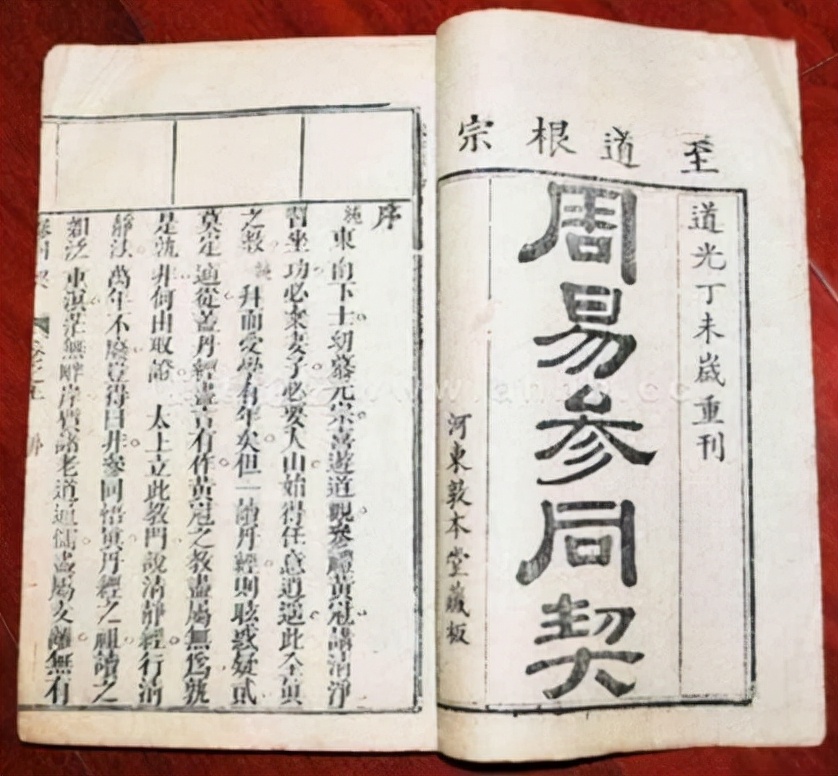 至道根宗
道光丁未歲重刊
周易参同契
河東敦本堂藏板
序
純東南下士幼慕元宗喜遊道觀參禮黃冠講清淨
習坐功必棄妻子必要入山始得任意逍遥此全眞
之教純拜而受學有年矣但一讀丹經則眩惑疑貳
莫定適從蓋丹經盡言有作黃冠之教盡屬無爲孰
是孰非何由取證太上立此教門說清靜經行清
靜法萬年不廢豈得曰非參同悟眞丹經之祖讀之
如泛東溟茫無畔岸質諸老道通儒盡屬支離無有